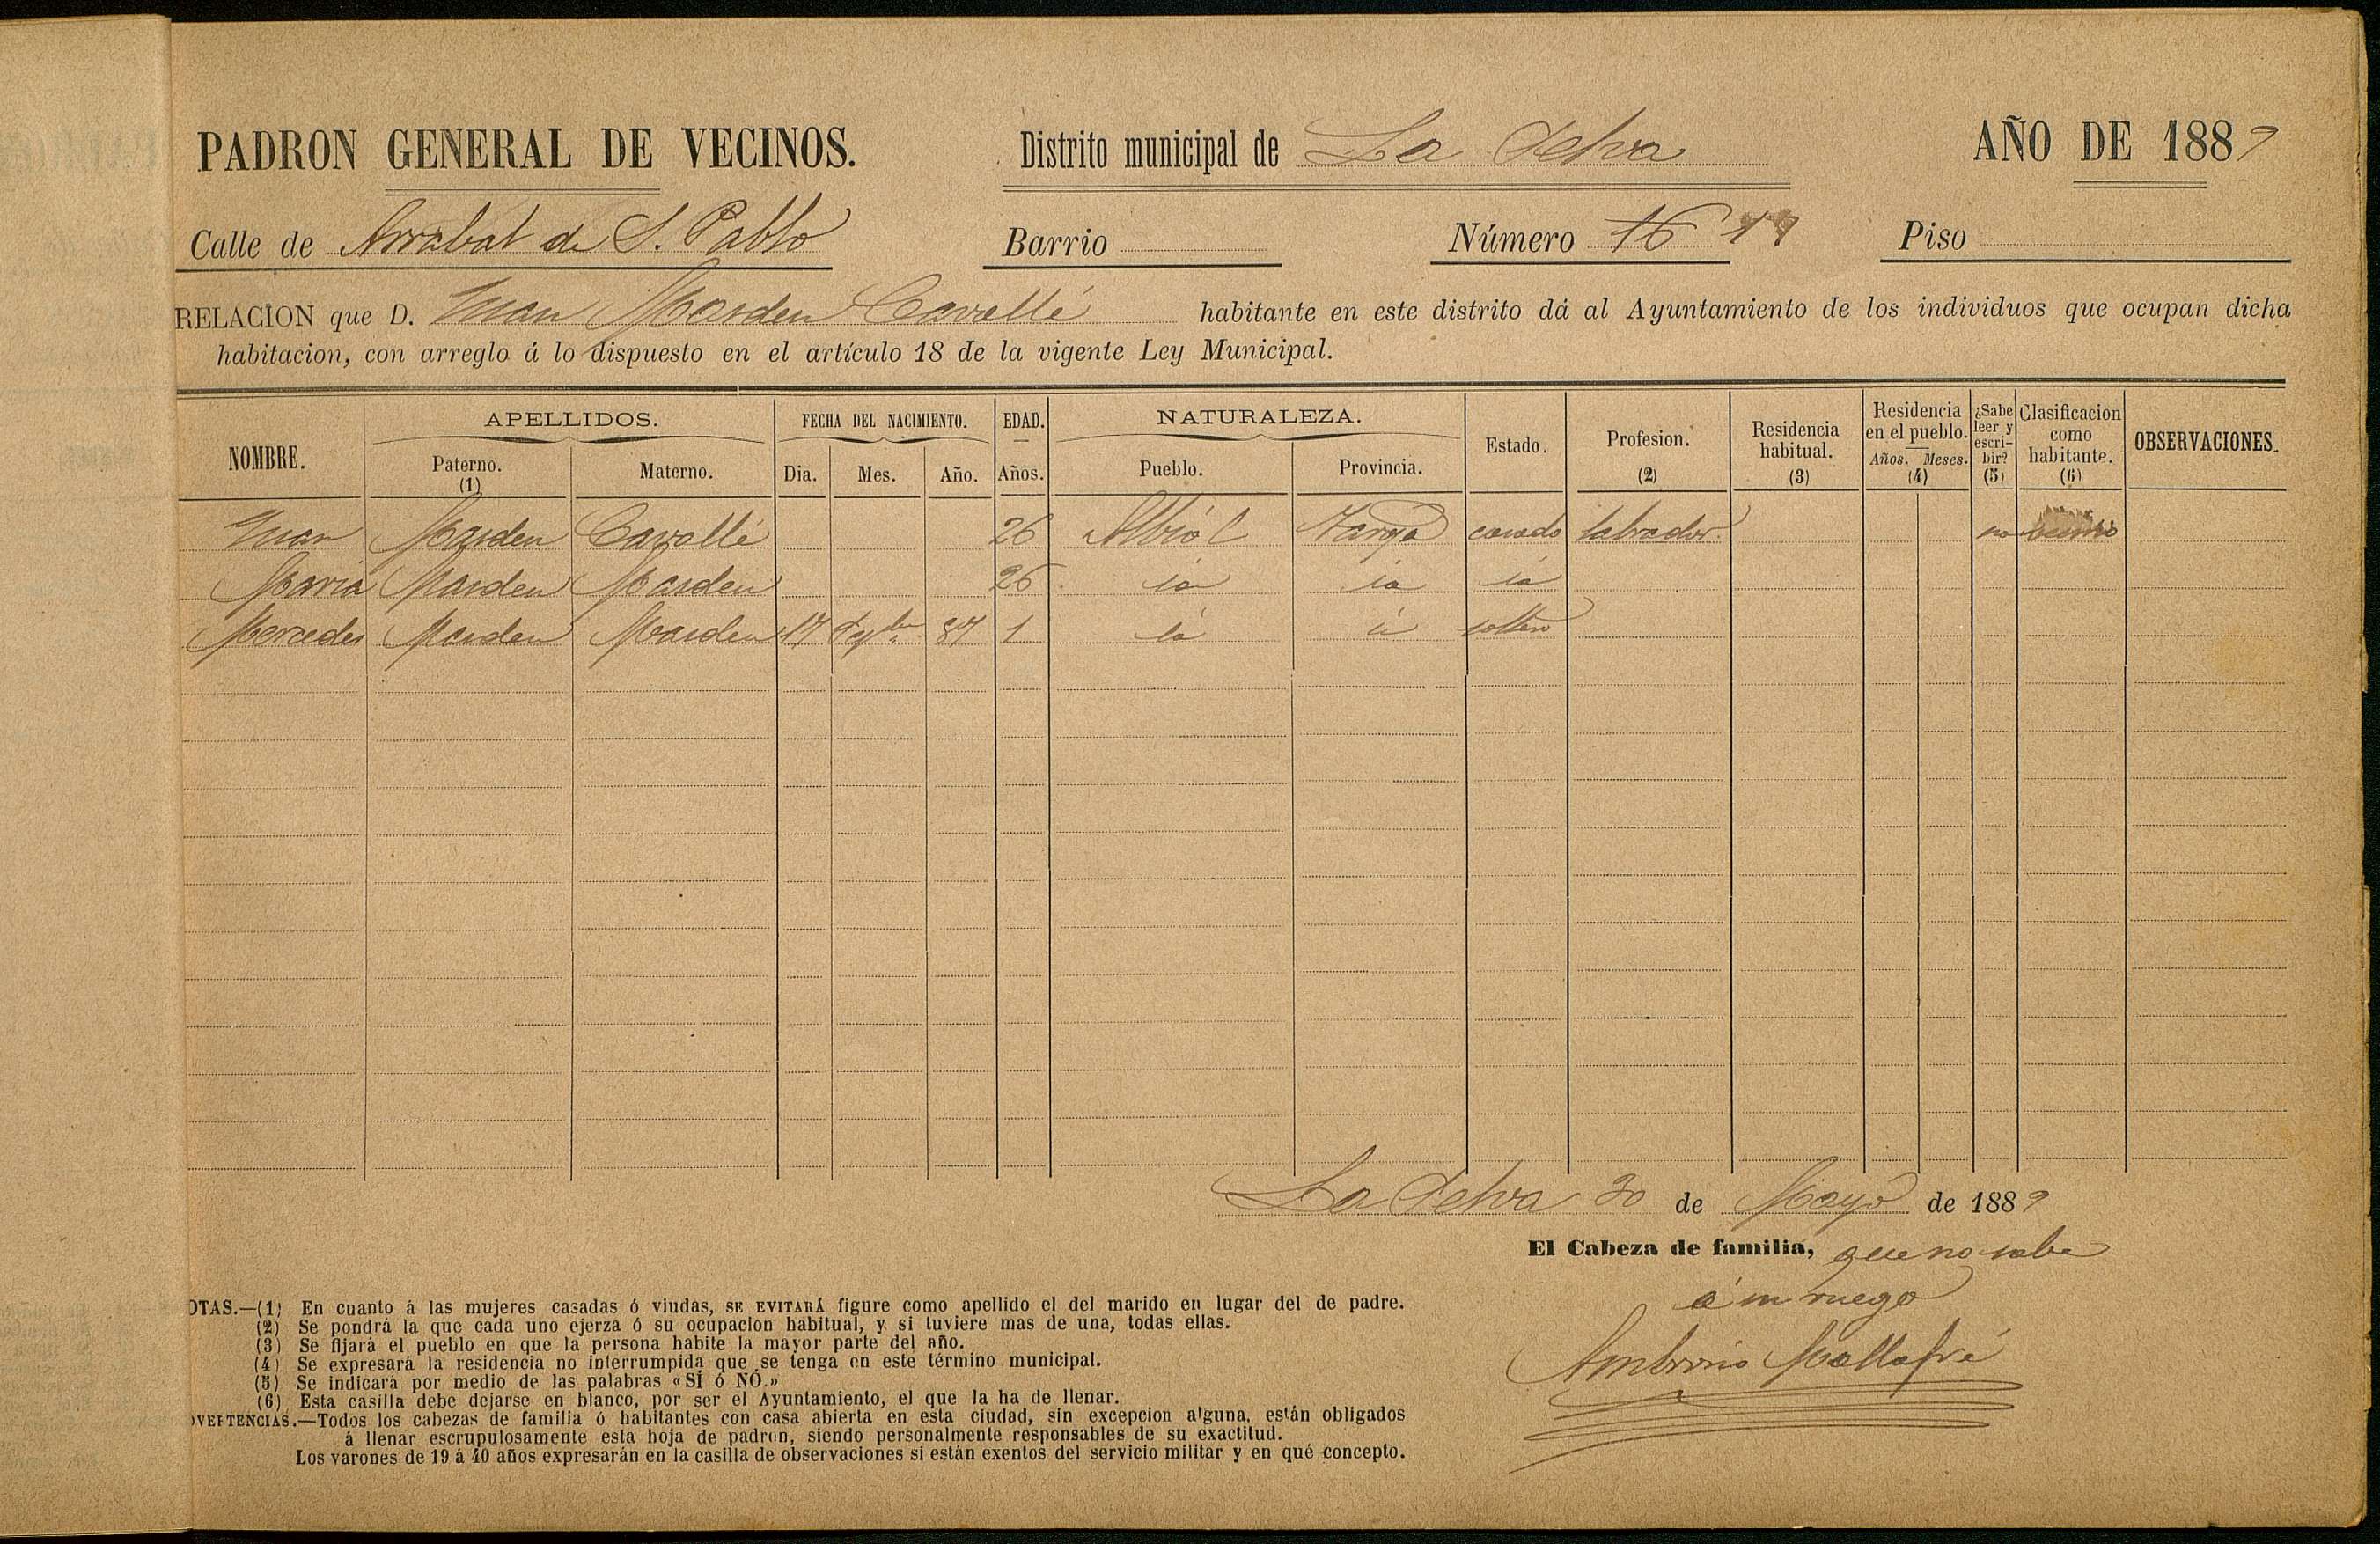 PADRON GENERAL DE VECINOS. Distrito municipal de La Selva AÑO DE 1889
Calle de Arrabal de S. Pablo Barrio Número 16 Piso
RELACION que D. Juan Masden Cavallé habitante en este distrito dá al Ayuntamiento de los individuos que ocupan dicha
habitacion, con arreglo á lo dispuesto en el artículo 18 de la vigente Ley Municipal.
NOMBRE. APELLIDOS. Paterno. (1) Materno. FECHA DEL NACIMIENTO. Dia. Mes. Año. EDAD. Años. NATURALEZA. Pueblo. Provincia. Estado. Profesion. (2) Residencia habitual. (3) Residencia en el pueblo. Años. Meses. (4) ¿Sabe leer y escribir? (5) Clasificacion como habitante. (6) OBSERVACIONES.
Juan Masden Cavallé 26 Albiol Tarrga casado labrador no vecino
Maria Masden Masden 26 id id id
Mercedes Masden Masden 17 87 1 id id soltera
La Selva 30 de Mayo de 1889
El Cabeza de familia, que no sabe
á su ruego
Ambrosio Mallafré
OTAS.—(1) En cuanto á las mujeres casadas ó viudas, SE EVITARÁ figure como apellido el del marido en lugar del de padre.
(2) Se pondrá la que cada uno ejerza ó su ocupacion habitual, y si tuviere mas de una, todas ellas.
(3) Se fijará el pueblo en que la persona habite la mayor parte del año.
(4) Se expresará la residencia no interrumpida que se tenga en este término municipal.
(5) Se indicará por medio de las palabras «SÍ ó NO.»
(6) Esta casilla debe dejarse en blanco, por ser el Ayuntamiento, el que la ha de llenar.
DVERTENCIAS.—Todos los cabezas de familia ó habitantes con casa abierta en esta ciudad, sin excepcion alguna, están obligados
á llenar escrupulosamente esta hoja de padron, siendo personalmente responsables de su exactitud.
Los varones de 19 á 40 años expresarán en la casilla de observaciones si están exentos del servicio militar y en qué concepto.